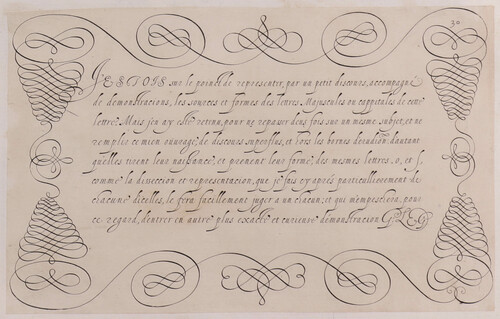 30
J'ESTOIS sur le point de representer, par un petit discours, accompagné
de demonstracions, les sources et formes des letres Majuscules ou cappitales de ceste
lettre. Mais j'en ay esté retenu, pour ne repasser deus fois sur un mesme subject, et ne
remplir ce mien ouvrage, de discours superflus, et hors les bornes
qu'elles tirent leur naissance, et prenent leur forme, des mesmes lettres, o, et f,
comme la dissection et representacion, que je fais cy aprés particullierement de
chacune d'icelles, le fera facillement juger a un chacun; et qui m'empeschera, pour
ce regard, d'entrer en autre plus exacte et curieuse demonstracion